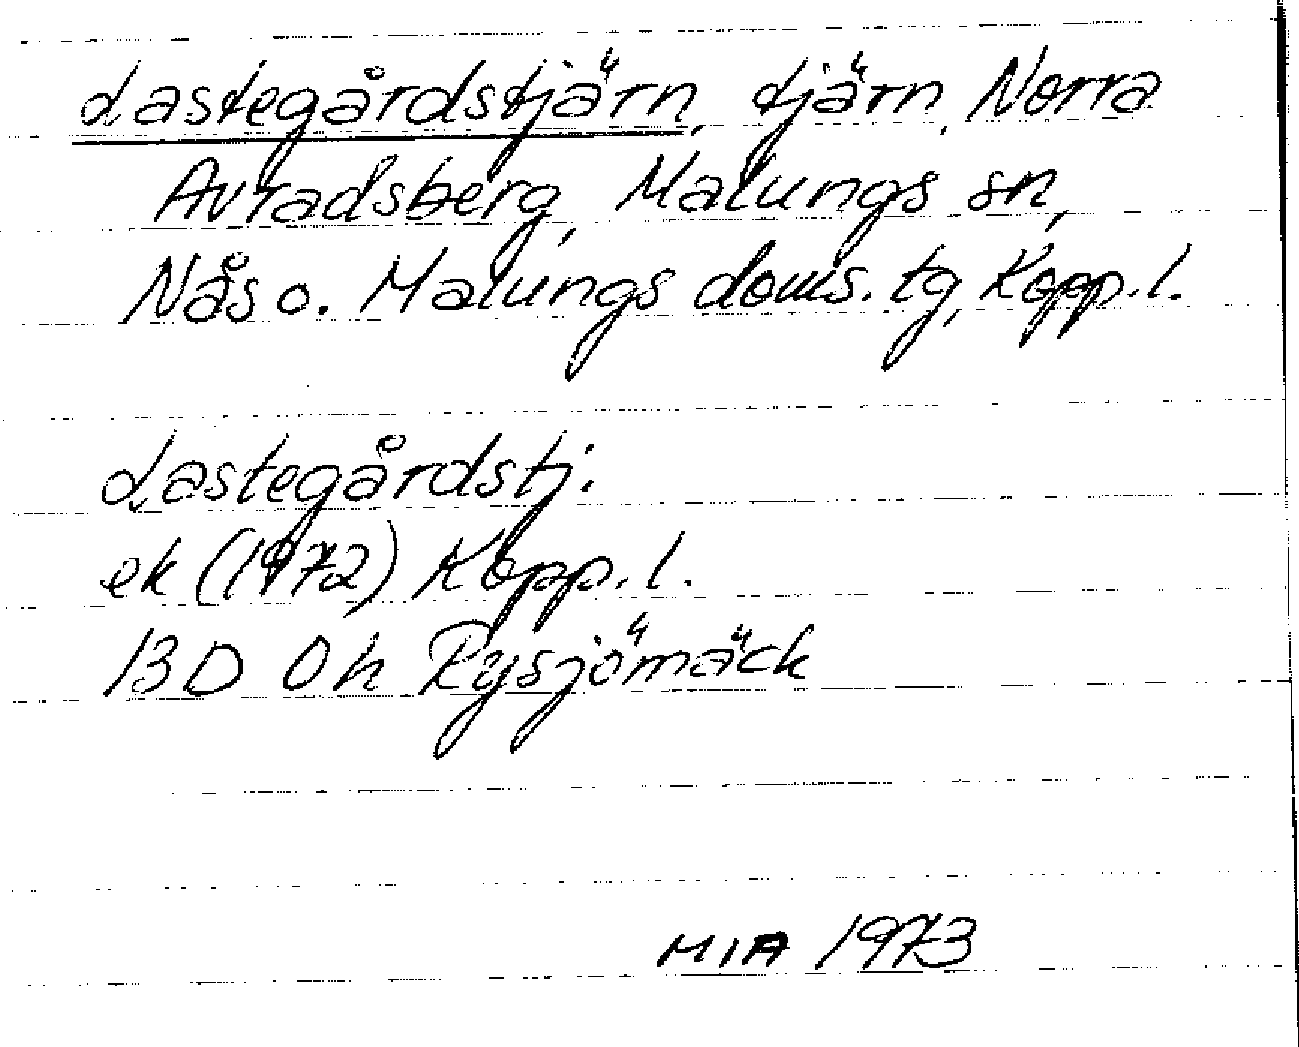 Lastegårdstjärn, tjärn, Norra
Avradsberg, Malungs sn,
Nås o. Malungs doms. tg, Kopp. l.
Lastegårdstj.
ek (1972) Kopp. l.
13D 0h Rysjömäck
MIA 1973